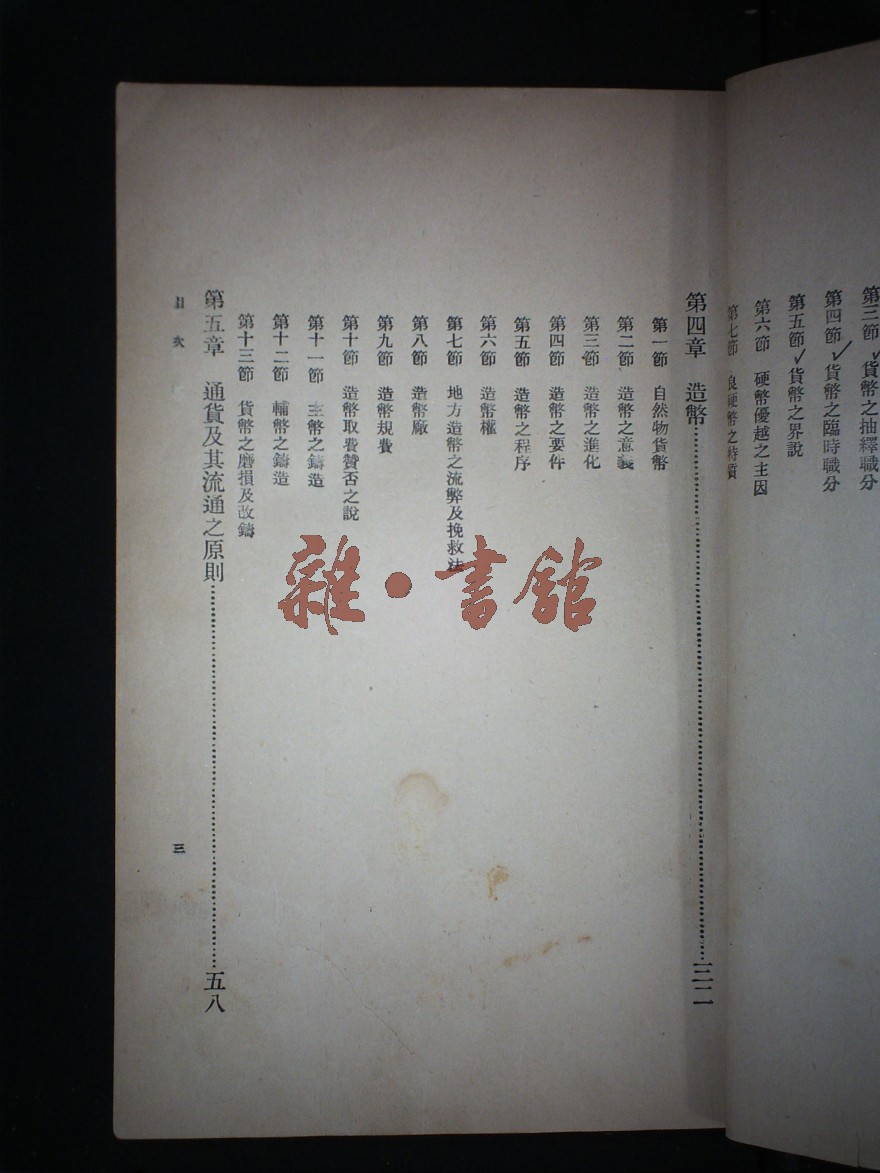 第三節 貨幣之抽繹職分
第四節 貨幣之臨時職分
第五節 貨幣之界說
第六節 硬幣優越之主因
第七節 良硬幣之特質
第四章 造幣……三二
第一節 自然物貨幣
第二節 造幣之意義
第三節 造幣之進化
第四節 造幣之要件
第五節 造幣之程序
第六節 造幣權
第七節 地方造幣之流弊及挽救法
第八節 造幣廠
第九節 造幣規費
第十節 造幣取費贊否之說
第十一節 主幣之鑄造
第十二節 輔幣之鑄造
第十三節 貨幣之磨損及改鑄
第五章 通貨及其流通之原則……五八
目次 三
雜·書館